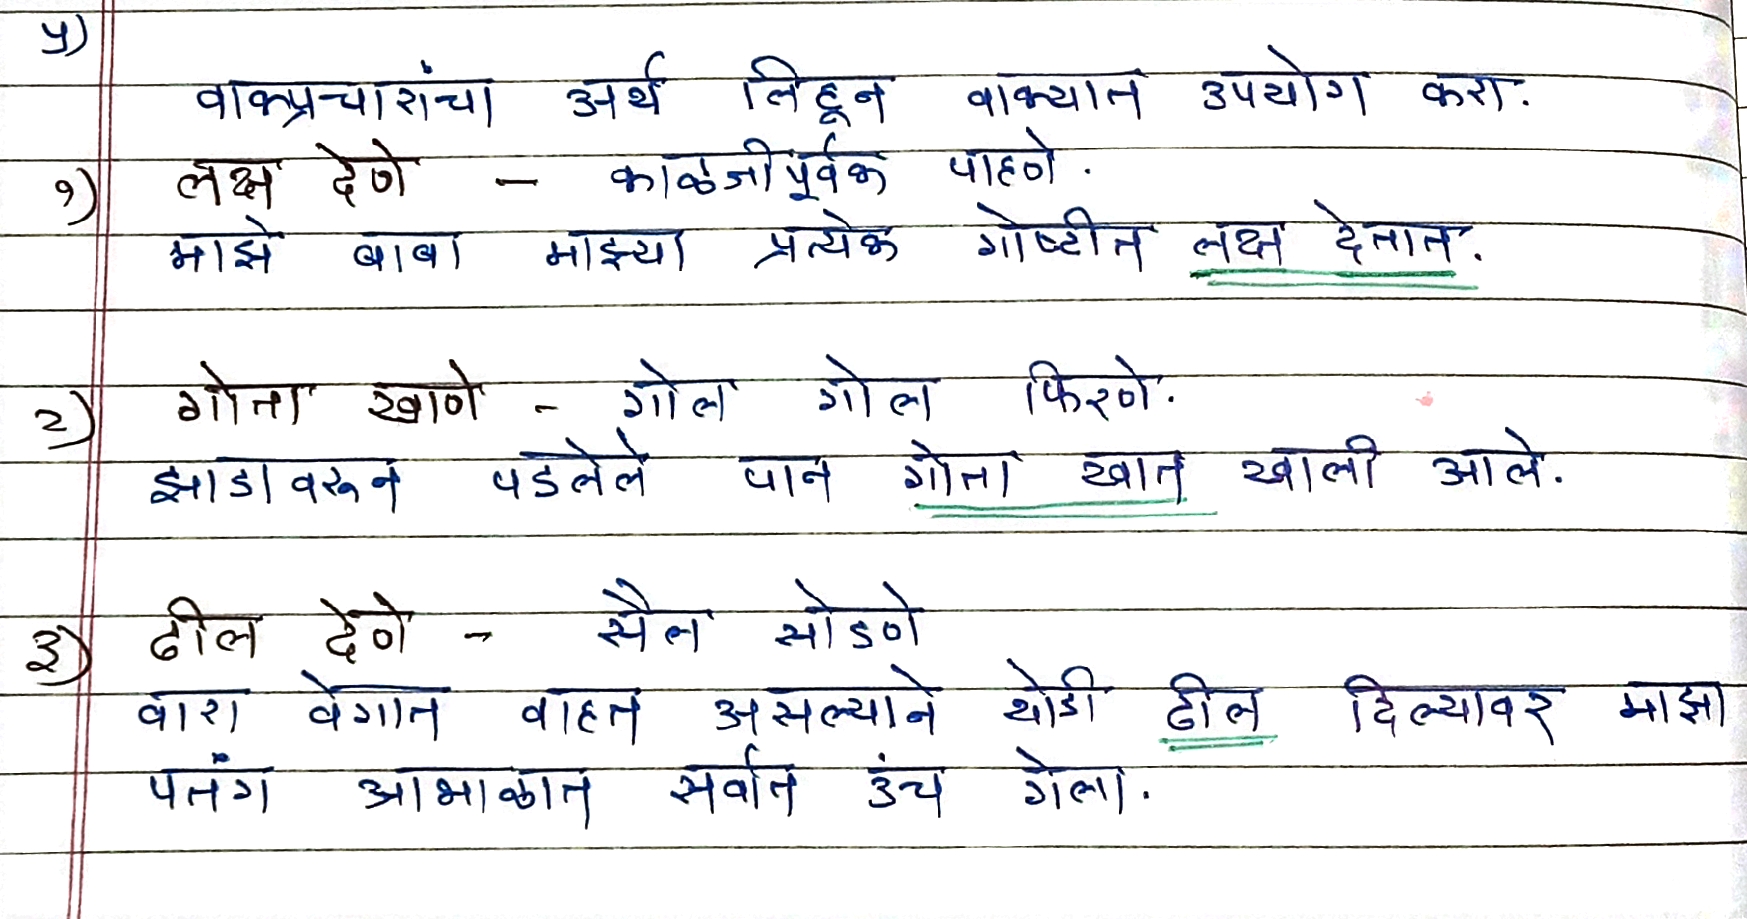 ५)
वाक्प्रचारांचा अर्थ लिहून वाक्यात उपयोग करा.
१) लक्ष देणे - काळजीपूर्वक पाहणे.
माझे बाबा माझ्या प्रत्येक गोष्टीत लक्ष देतात.
२) गोता खाणे - गोल गोल फिरणे.
झाडावरून पडलेले पान गोता खात खाली आले.
३) ढील देणे - सैल सोडणे
वारा वेगात वाहत असल्याने थोडी ढील दिल्यावर माझा
पतंग आभाळात सर्वात उंच गेला.